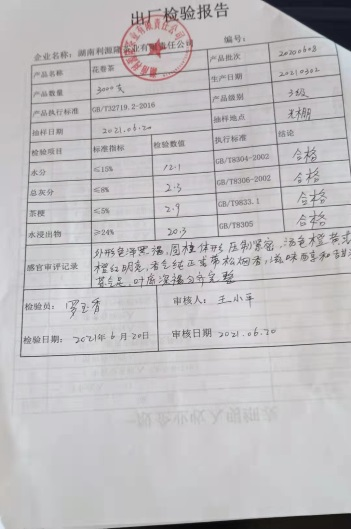 出厂检验报告
企业名称：湖南利源隆茶业有限责任公司 编号：
产品名称 花卷茶 产品批次 20200608
产品数量 3000支 生产日期 20210302
产品执行标准 GB/T32719.2-2016 产品级别 3级
抽样日期 2021.06.20 抽样地点 光棚
检验项目 标准指标 检验数值 执行标准 结论
水分 ≤15% 12.1 GB/T8304-2002 合格
总灰分 ≤8% 2.3 GB/T8306-2002 合格
茶梗 ≤5% 2.9 GB/T9833.1 合格
水浸出物 ≥24% 20.3 GB/T8305 合格
外形色泽黑褐，圆柱体形，压制紧密，汤色橙黄或
感官审评记录 橙红明亮，香气纯正或带松烟香，滋味醇和
叶底深褐 完整
检验员： 罗玉香 审核人：王小平
检验日期：2021年6月20日 审核日期 2021.06.20